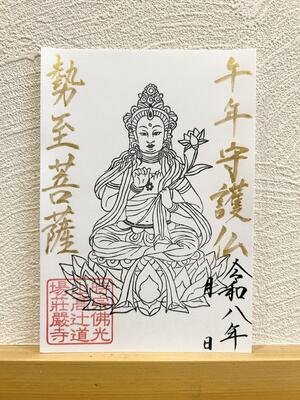 午年守護仏
令和八年
月
日
勢至菩薩
時宗佛光
山高辻道
場莊嚴寺